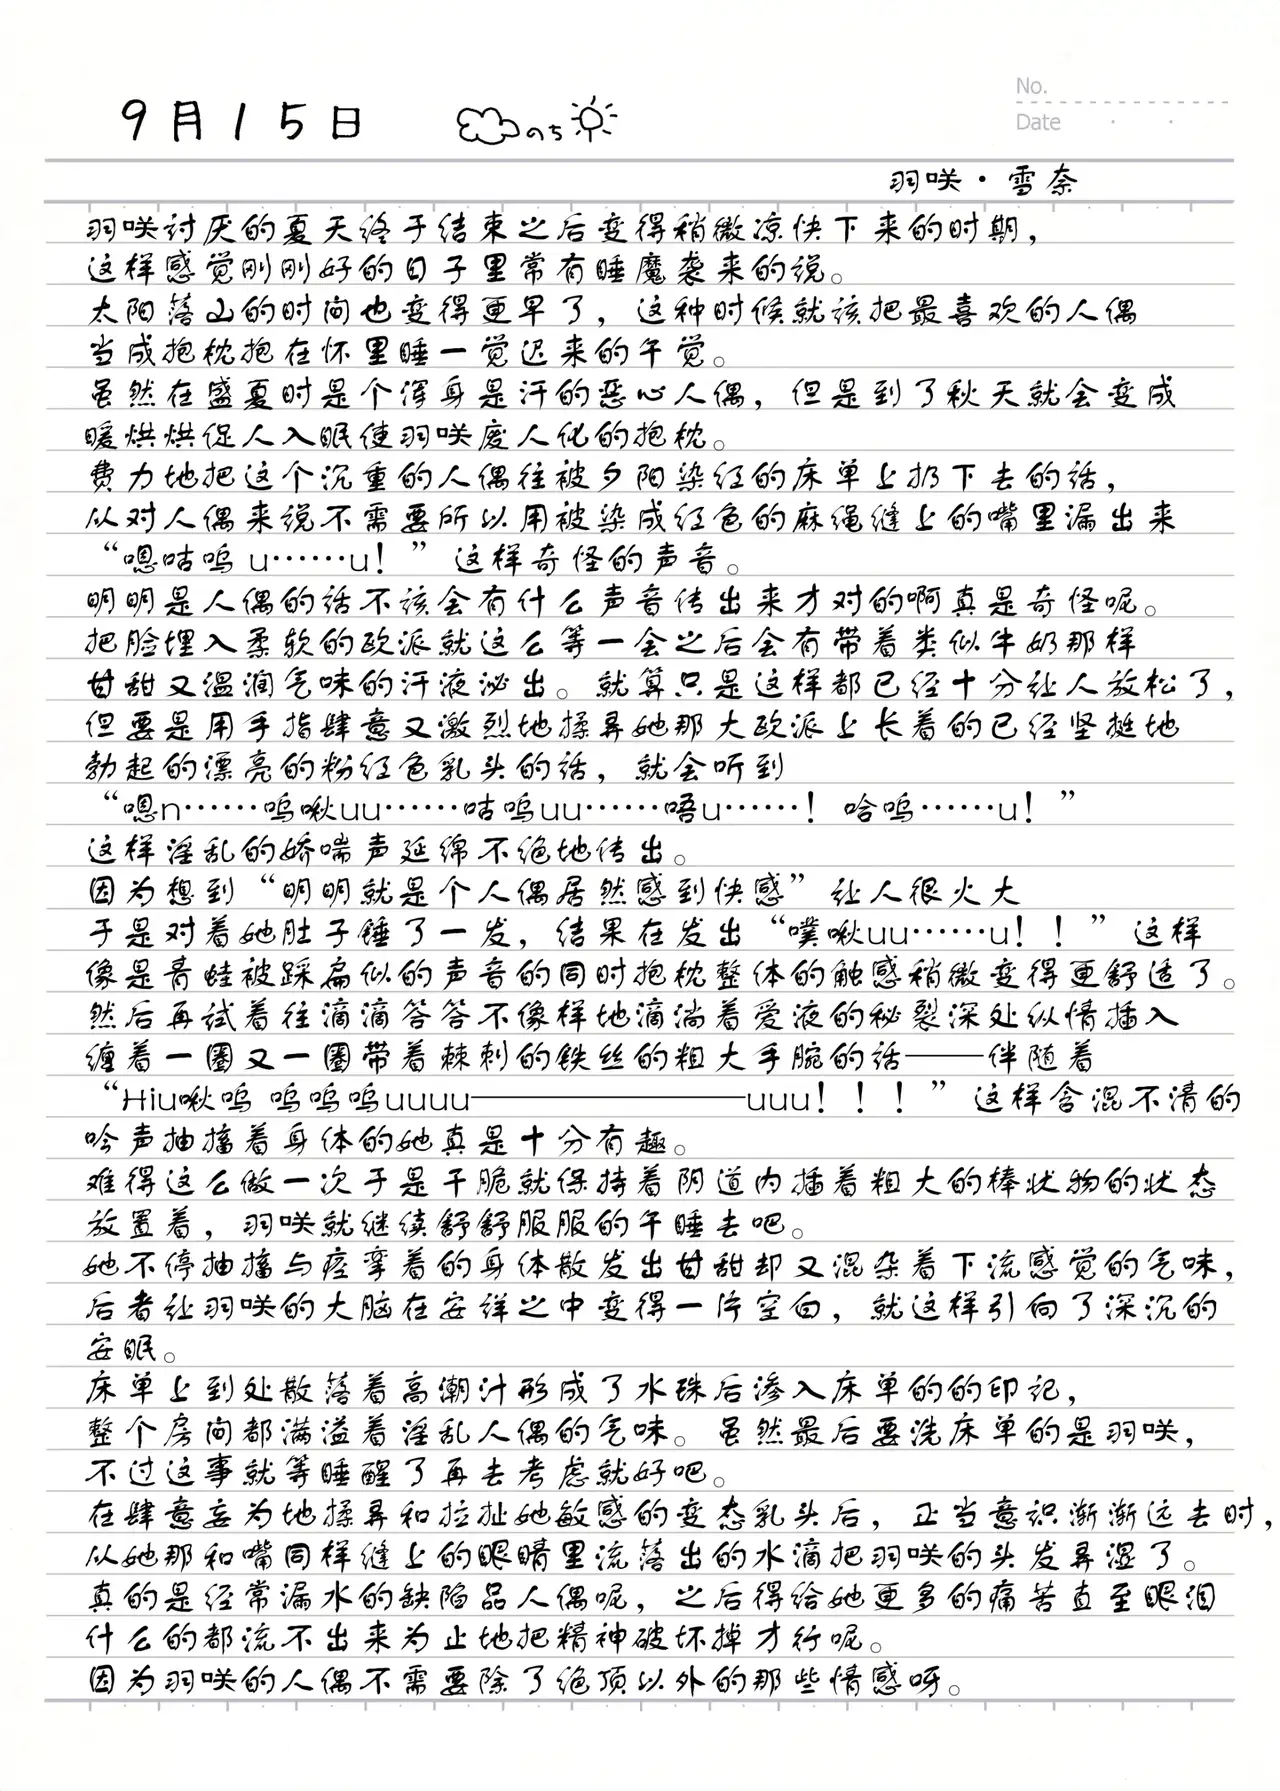 No.
Date
9月15日 のち
羽咲·雪奈
羽咲讨厌的夏天终于结束之后变得稍微凉快下来的时期，
这样感觉刚刚好的日子里常有睡魔袭来的说。
太阳落山的时间也变得更早了，这种时候就该把最喜欢的人偶
当成抱枕抱在怀里睡一觉迟来的午觉。
虽然在盛夏时是个浑身是汗的恶心人偶，但是到了秋天就会变成
暖烘烘促人入眠使羽咲废人化的抱枕。
费力地把这个沉重的人偶往被夕阳染红的床单上扔下去的话，
从对人偶来说不需要所以用被染成红色的麻绳缝上的嘴里漏出来
“嗯咕呜 u……u！”这样奇怪的声音。
明明是人偶的话不该会有什么声音传出来才对的啊真是奇怪呢。
把脸埋入柔软的欧派就这么等一会之后会有带着类似牛奶那样
甘甜又温润气味的汗液泌出。就算只是这样都已经十分让人放松了，
但要是用手指肆意又激烈地揉弄她那大欧派上长着的已经坚挺地
勃起的漂亮的粉红色乳头的话，就会听到
“嗯n……呜啾uu……咕呜uu……唔u……！哈呜……u！”
这样淫乱的娇喘声延绵不绝地传出。
因为想到“明明就是个人偶居然感到快感”让人很火大
于是对着她肚子锤了一发，结果在发出“噗啾uu……u！！”这样
像是青蛙被踩扁似的声音的同时抱枕整体的触感稍微变得更舒适了。
然后再试着往滴滴答答不像样地滴淌着爱液的秘裂深处纵情插入
缠着一圈又一圈带着棘刺的铁丝的粗大手腕的话——伴随着
“Hiu啾呜 呜呜呜uuuu———————uuu！！！”这样含混不清的
吟声抽搐着身体的她真是十分有趣。
难得这么做一次于是干脆就保持着阴道内插着粗大的棒状物的状态
放置着，羽咲就继续舒舒服服的午睡去吧。
她不停抽搐与痉挛着的身体散发出甘甜却又混杂着下流感觉的气味，
后者让羽咲的大脑在安详之中变得一片空白，就这样引向了深沉的
安眠。
床单上到处散落着高潮汁形成了水珠后渗入床单的的印记，
整个房间都满溢着淫乱人偶的气味。虽然最后要洗床单的是羽咲，
不过这事就等睡醒了再去考虑就好吧。
在肆意妄为地揉弄和拉扯她敏感的变态乳头后，正当意识渐渐远去时，
从她那和嘴同样缝上的眼睛里流落出的水滴把羽咲的头发弄湿了。
真的是经常漏水的缺陷品人偶呢，之后得给她更多的痛苦直至眼泪
什么的都流不出来为止地把精神破坏掉才行呢。
因为羽咲的人偶不需要除了绝顶以外的那些情感呀。